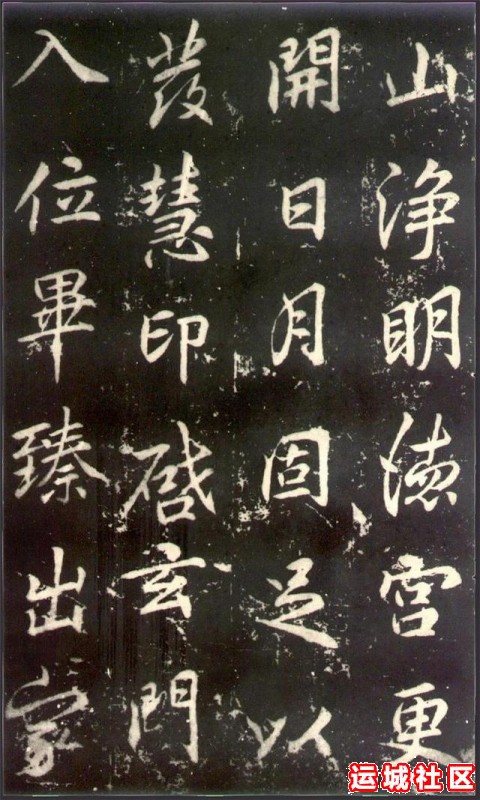 山淨明德宮更
開日月固足以
發慧印啓玄門
入位畢臻出家
运城社区